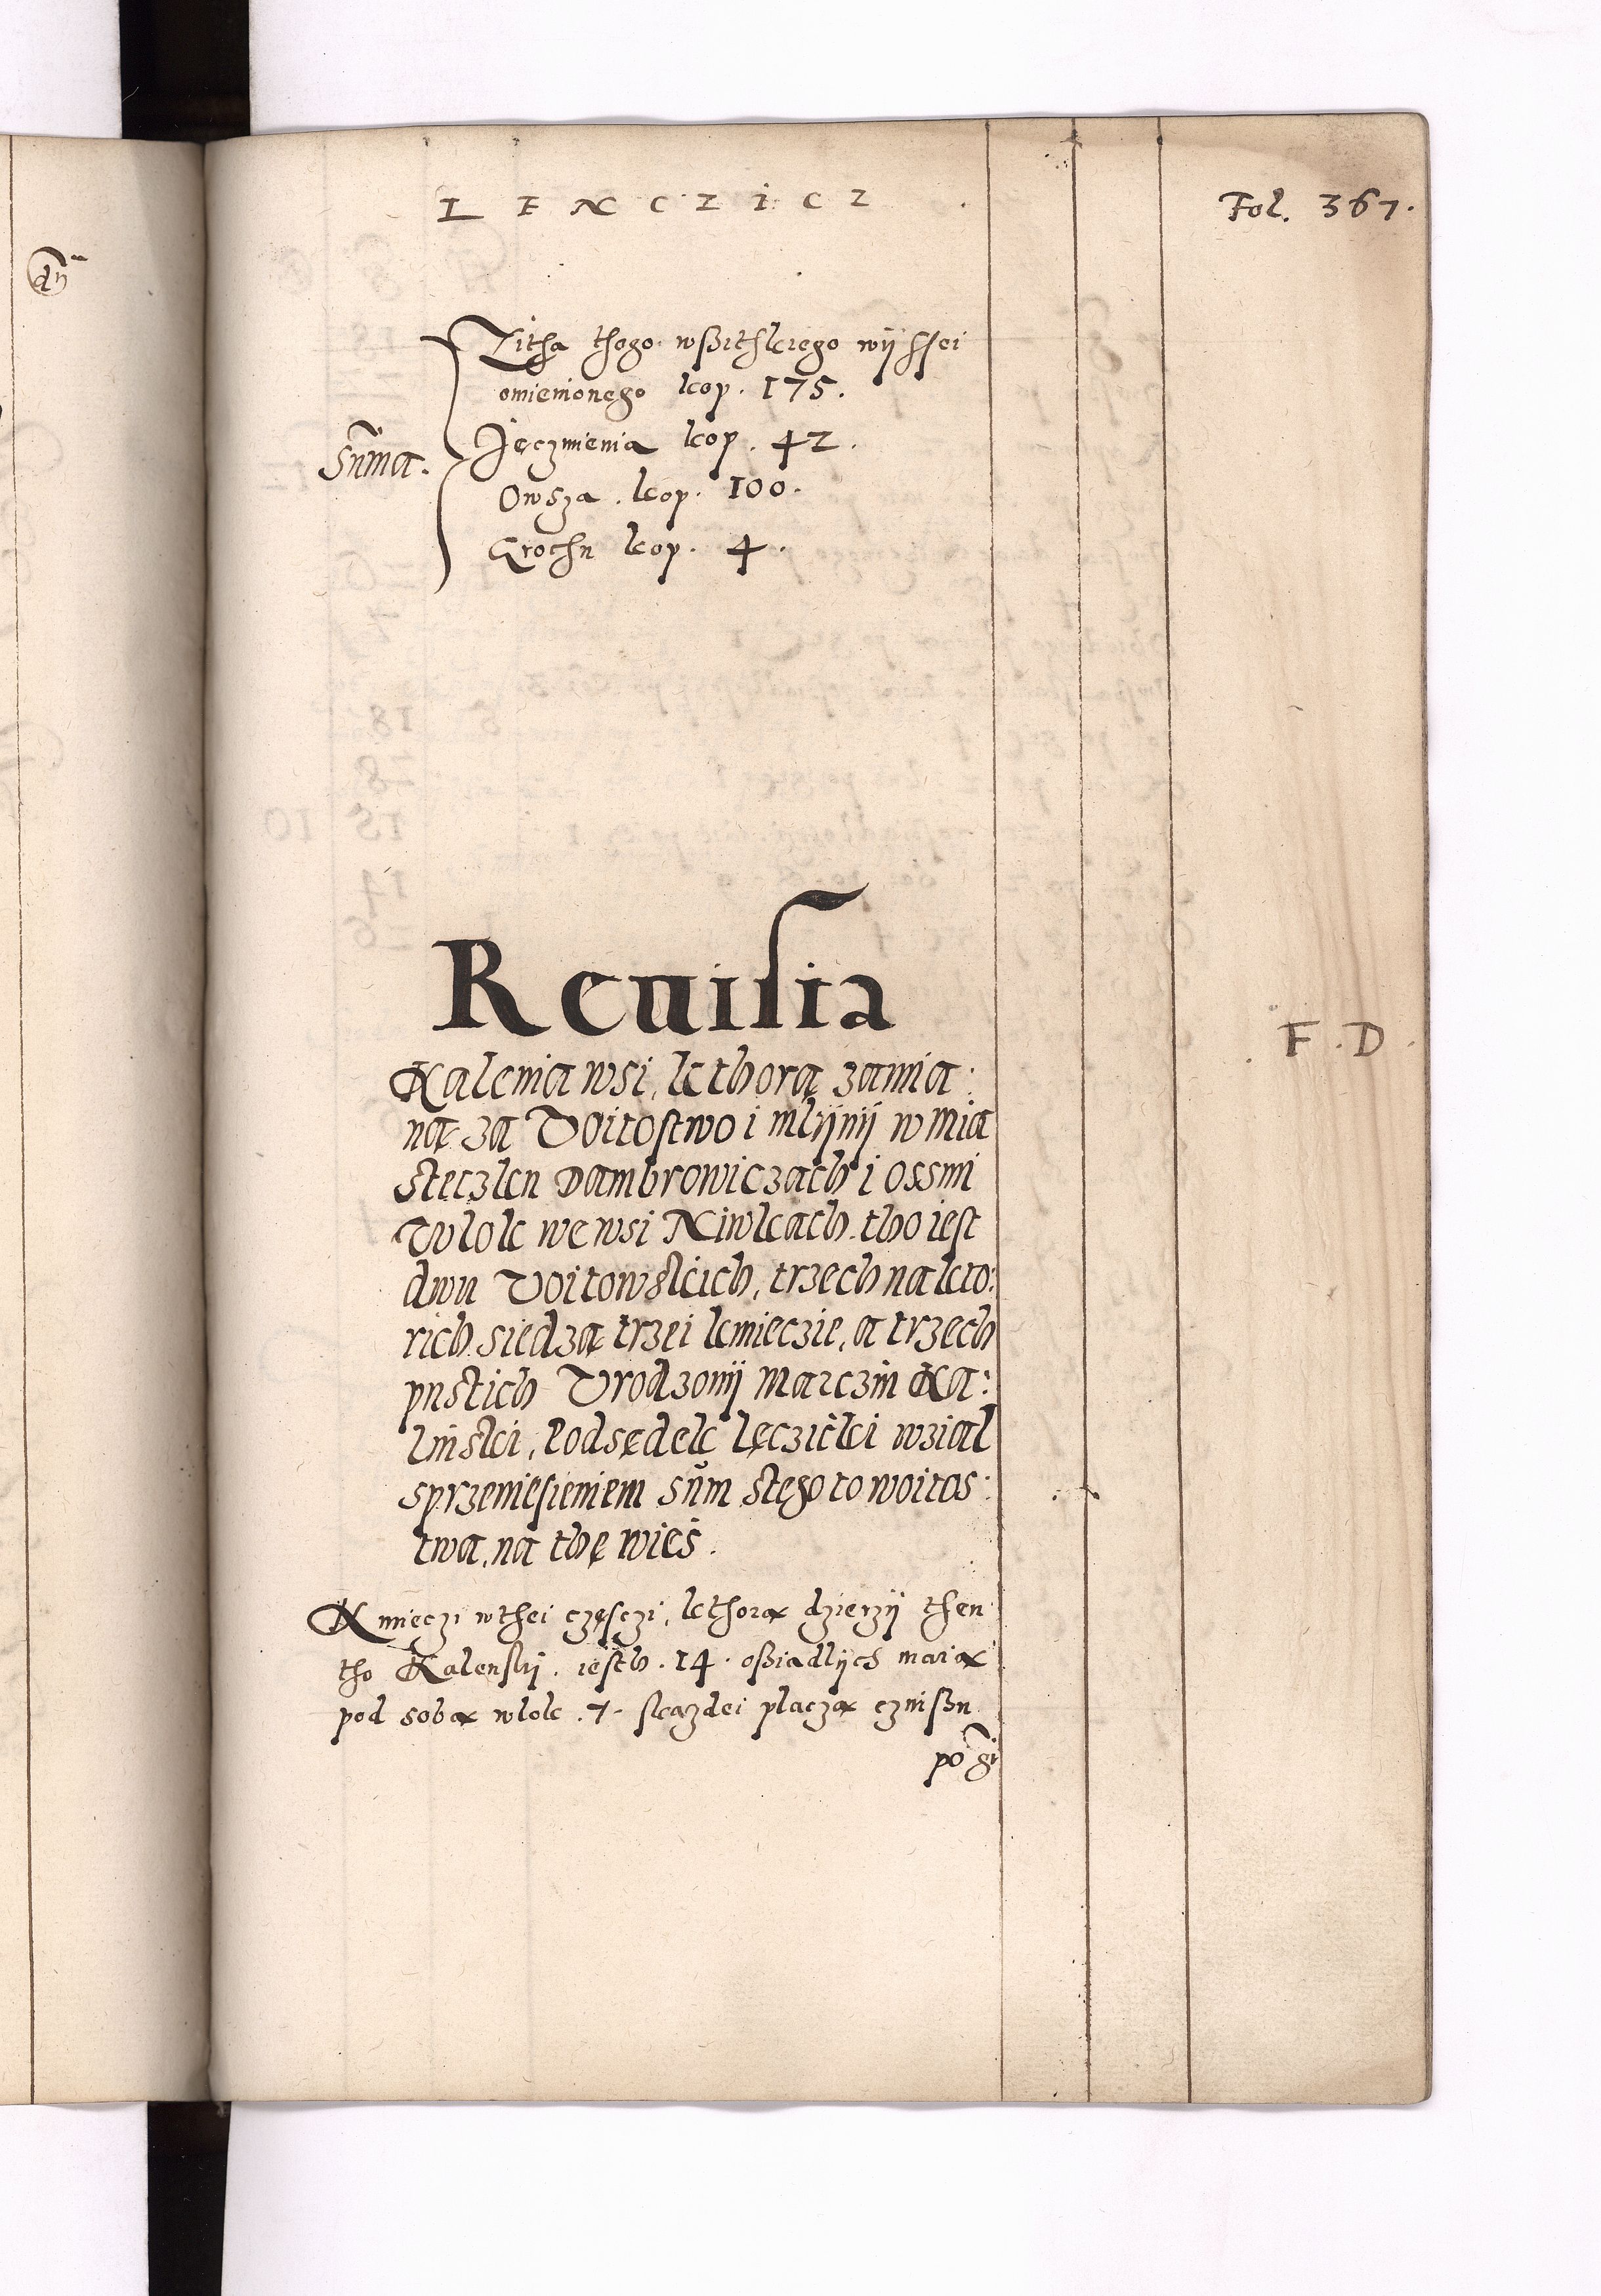 LENCZICZ
Fol. 367.
dn̄
Zitha thego wßithkiego wÿssei
omienionego kop. 175.
Sūma. Jęczmienia kop. 42.
Owsza. kop. 100.
Grochu kop. 4.
Reuisia
F. D.
Kalenia wsi, kthorą zamia:
ną za Voitostwo i mlÿnÿ w mia
steczku Dambrowiczach i ossmi
Wlok we wsi Niwkach. tho iest
dwu Voitowskich, trzech na kto:
rich siedzą trzei kmieczie, a trzech
pustich Vrodzonÿ Marczin Ka:
linski, Podsędek lęczicki wzial
sprzeniesieniem sūm stego to woitos:
twa, na thę wieś.
Kmieczi wthei częsczi, kthorą dzierzÿ then
tho Kalenskÿ. iesth. 14. oßiadlÿch maią
pod sobą wlok. 7. skazdei placzą czinßu
po gr̄